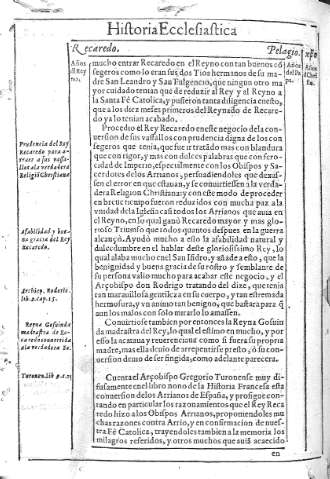 Historia Ecclesiastica
Recaredo.
Pelagio.
Años
del Rey
no.
Años
del Pa
pa.
Años
de Chri
sto.
mucho entrar Recaredo en el Reyno con tan buenos có
segeros como lo eran sus dos Tios hermanos de su ma
dre San Leandro y San Fulgencio, que ningun otro ma
yor cuidado tenian que de reduzir al Rey y el Reyno a
la Santa Fé Catolica, y pusieron tanta diligencia en esto,
que a los diez meses primeros del Reynado de Recare-
do ya lo tenian acabado.
Prudencia del Rey
Recaredo para a-
traer a sus vasa-
llos a la verdadera
Religiõ Christiana
Procedio el Rey Recaredo en este negocio de la con
version de sus vassallos con prudencia digna de los con
segeros que tenia, que fue ir tratado mas con blandura
que con rigor, y mas con dulces palabras que con fero-
cidad de Imperio, especialmente con los Obispos y Sa-
cerdotes de los Arrianos, persuadiendoles que dexas-
sen el error en que estauan, y se conuirtiessen a la verda
dera Religion Christiana: y con este modo de proceder
en breue tiempo fueron reduzidos con mucha paz a la
vnidad de la Iglesia casi todos los Arrianos que auia en
el Reyno, en lo qual ganò Recaredo mayor y mas glo-
rioso Triunfo que todos quantos despues en la guerra
alcançò. Ayudò mucho a esto la afabilidad natural y
Afabilidad y bue
na gracia del Rey
Recaredo.
dulcedumbre en el hablar deste gloriosissimo Rey, lo
qual alaba mucho en el San Isidro, y añade a esto, que la
benignidad y buena gracia de su rostro y semblante de
su persona valio mucho para acabar este negocio, y el
Arçobispo don Rodrigo tratando del dize, que tenia
Archiep. Roderic.
lib. 2. cap. 15.
tan marauillosa gentileza en su cuerpo, y tan estremada
hermosura, y vn animo tan benigno, que bastara para q̃
aun los malos con solo mirarlo lo amassen.
Reyna Gosuinda
madrastra de Re-
caredo conuertida
a la verdadera Fè.
Conuirtiose tambien por entonces la Reyna Gosuin
da madrastra del Rey, lo qual el estimò en mucho, y por
esso la acataua y reuerenciaua como si fuera su propria
madre, mas ella ò luego de arrepentirse presto, ò su con
version deuio de ser fingida, como adelante parecera.
Turonen. lib. 9. c. 15
Cuenta el Arçobispo Gregorio Turonense muy di-
fusamente en el libro nono de la Historia Francesa esta
conversion de los Arrianos de España, y prosigue con-
tando en particular los razonamientos que el Rey Reca
redo hizo a los Obispos Arrianos, proponiendoles mu
chas razones contra Arrio, y en confirmacion de nues-
tra Fè Catolica, trayendoles tambien a la memoria los
milagros referidos, y otros muchos que auia acaecido
en